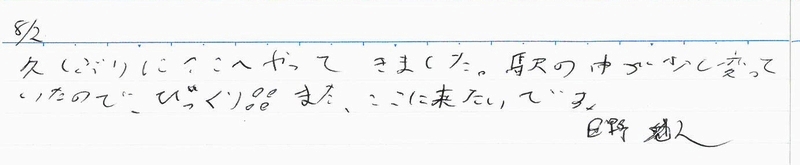 8/2
久しぶりにここへやって きました。駅の中が少し変って
いたので、びっくり!! また、ここに来たいです。
日野